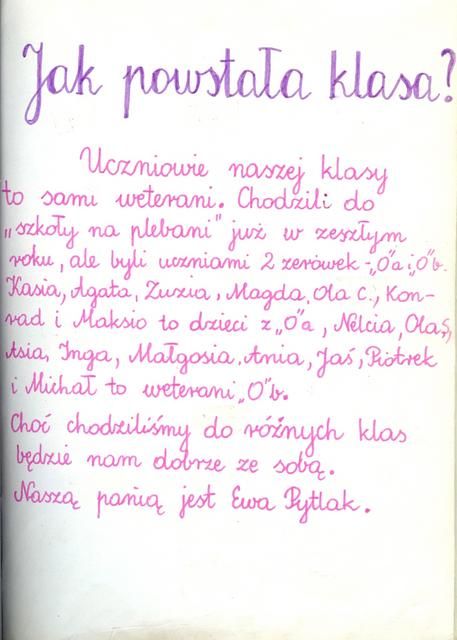 Jak powstała klasa?
Uczniowie naszej klasy
to sami weterani. Chodzili do
„szkoły na plebani" już w zeszłym
roku, ale byli uczniami 2 zerówek - „O"a i „O"b.
Kasia, Agata, Zuzia, Magda, Ola C., Kon-
rad i Maksio to dzieci z „O"a, Nelcia, Ola S,
Asia, Inga, Małgosia, Ania, Jaś, Piotrek
i Michał to weterani „O"b.
Choć chodziliśmy do różnych klas
będzie nam dobrze ze sobą.
Naszą panią jest Ewa Pytlak.